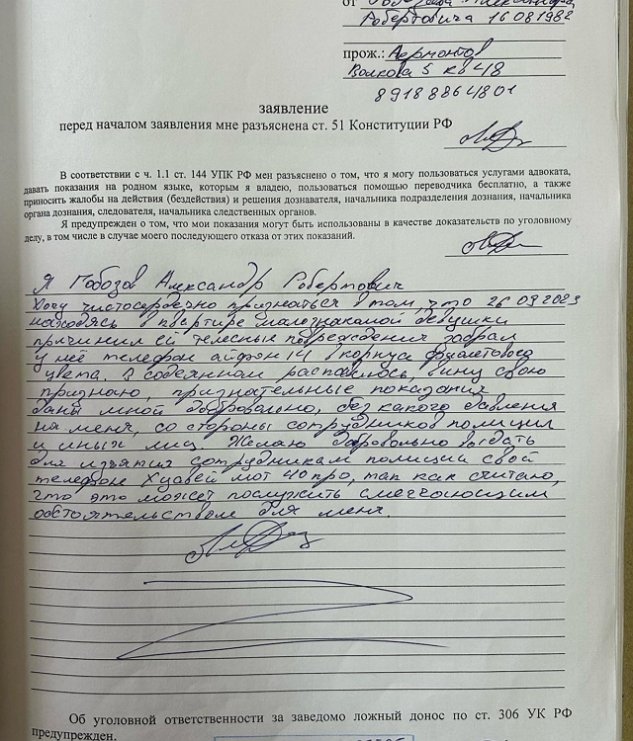 от
Робертовича 16081982
прож.: Лермонтов
Волкова 5 кв 48
89188864801
заявление
перед началом заявления мне разъяснена ст. 51 Конституции РФ
В соответствии с ч. 1.1 ст. 144 УПК РФ мен разъяснено о том, что я могу пользоваться услугами адвоката,
давать показания на родном языке, которым я владею, пользоваться помощью переводчика бесплатно, а также
приносить жалобы на действия (бездействия) и решения дознавателя, начальника подразделения дознания, начальника
органа дознания, следователя, начальника следственных органов.
Я предупрежден о том, что мои показания могут быть использованы в качестве доказательств по уголовному
делу, в том числе в случае моего последующего отказа от этих показаний.
Я Гобозов Александр Робертович
Хочу чистосердечно признаться в том, что 26 09 2023
находясь в квартире малознакомой девушки
причинил ей телесные повреждения забрал
у неё телефон айфон 14 в корпусе фиолетового
цвета. В содеянном раскаиваюсь, вину свою
признаю, признательные показания
даны мной добровольно, без какого давления
на меня, со стороны сотрудников полиции
и иных лиц. Желаю добровольно выдать
для изъятия сотрудникам полиции свой
телефон Хуавей мот 40 про, так как считаю,
что это может послужить смегчающим
обстоятельством для меня.
Об уголовной ответственности за заведомо ложный донос по ст. 306 УК РФ
предупрежден.